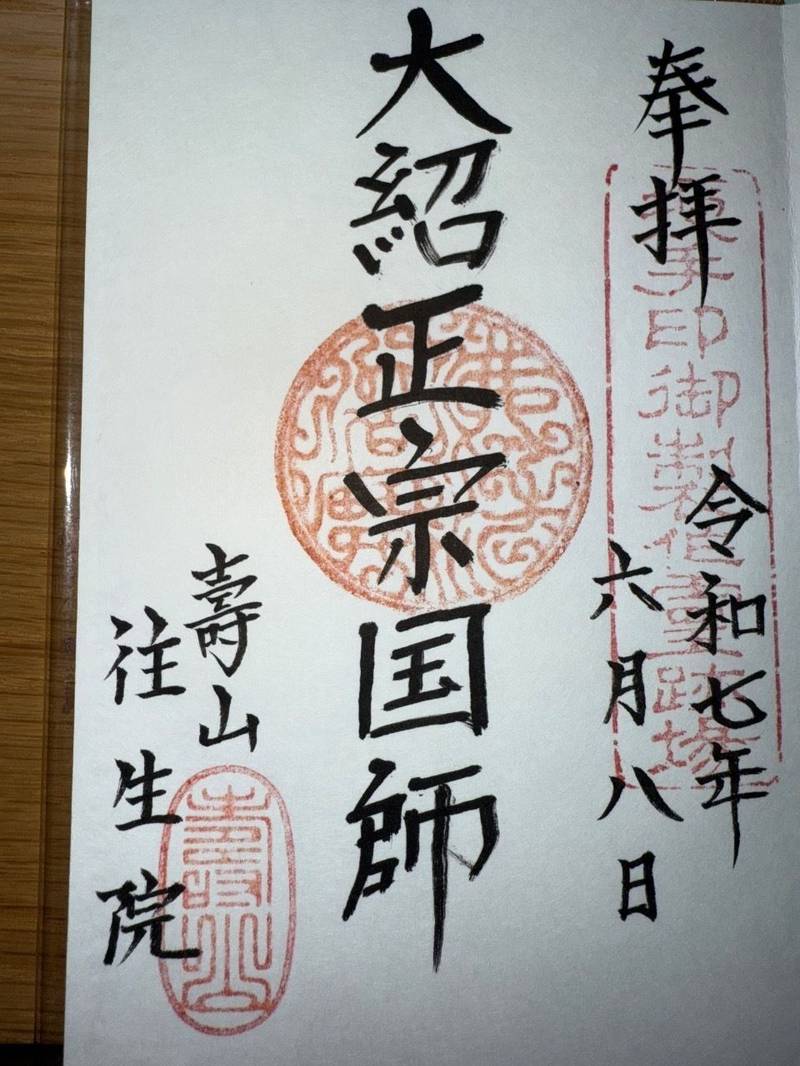 奉拝
令和七年
六月八日
手印御製作霊跡場
大紹正宗国師
壽山
往生院
壽山